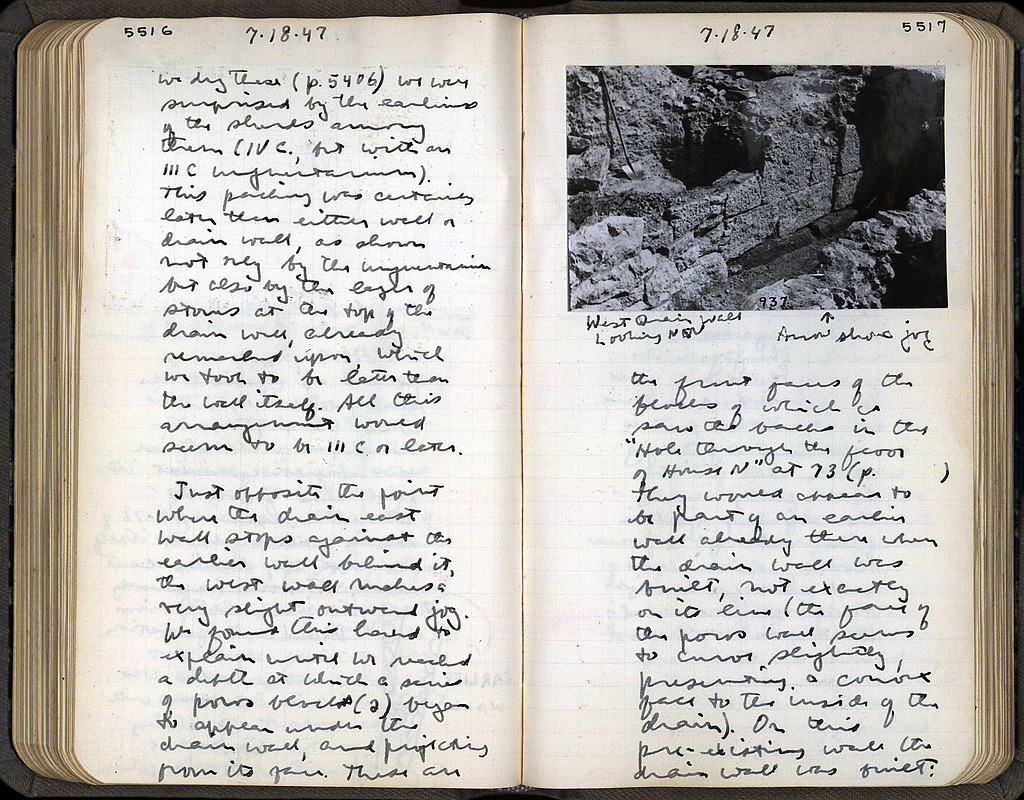 5516
7·18·47
we dug these (p. 5406) we were
surprised by the earliness
of the sherds among
them (IV C., but with an
III C unguentarium).
This packing was certainly
later than either wall or
drain wall, as shown
not only by the unguentarium
but also by the layer of
stones at the top of the
drain wall, already
remarked upon, which
we took to be later than
the wall itself. All this
arrangement would
seem to be III C or later.
Just opposite the point
where the drain east
wall stops against the
earlier wall behind it,
the west wall makes a
very slight outward jog.
We found this hard to
explain until we reached
a depth at which a series
of poros blocks (2) began
to appear under the
drain wall, and projecting
from its face. These are
7·18·47
5517
937
West Drain Wall
Looking NW
Arrow shows jog
the front faces of the
blocks of which we
saw the backs in the
"Hole through the floor
of House N" at 73 (p. )
They would appear to
be part of an earlier
wall already there when
the drain wall was
built, not exactly
on its line (the face of
the poros wall seems
to curve slightly,
presenting a convex
face to the inside of the
drain). On this
pre-existing wall the
drain wall was built.